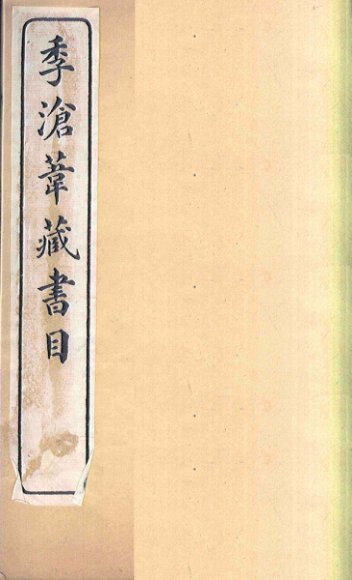 季滄葦藏書目